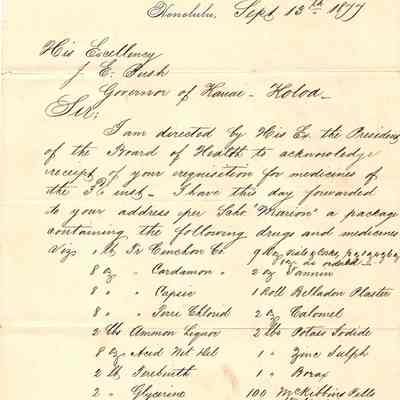 Honolulu, Sept 13th 1877
His Excellency
J. E. Bush
Governor of Kauai - Koloa -
Sir;
I am directed by His Ex. the President
of the Board of Health to acknowledge
receipt of your requisition for medicines of
the inst - I have this day forwarded
to your address per Schr "Marion" a package
containing the following drugs and medicines
Viz 1 lb Tr Cinchon Co 9 Doz vials & Corks
8 oz " Cardamon as ordered 2 oz Tannin
8 " " Capsic 1 Roll Belladon Plaster
8 " " Ferri Chlorid 2 oz Calomel
2 lbs Ammon Liquor 2 lbs Potass Iodide
8 oz Acid Nit 1 " Zinc Sulph
2 lb Terebinth 1 " Borax
2 " Glycerine 100 McKibbins Pills